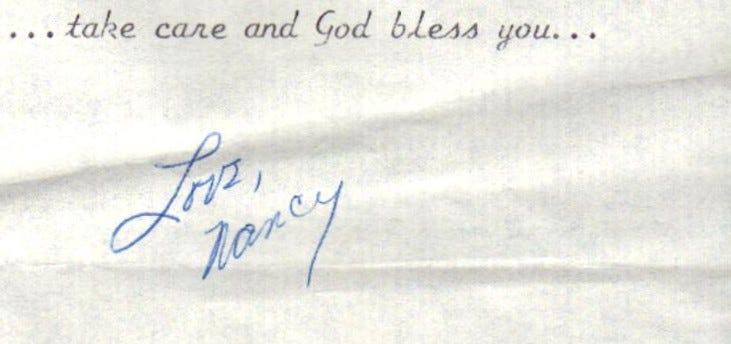 ...take care and God bless you...
Love,
Nancy